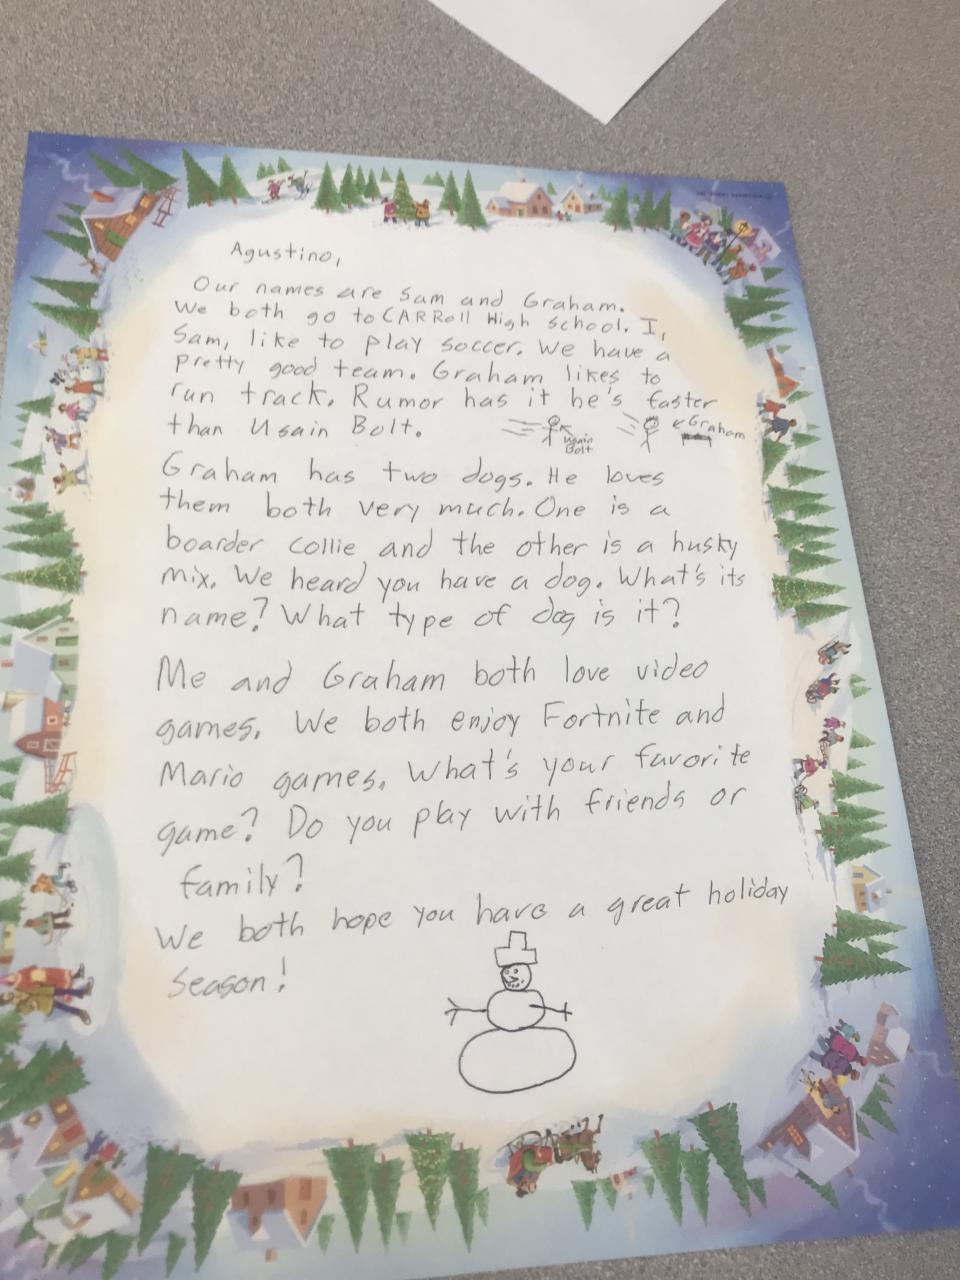 Agustino,
Our names are Sam and Graham.
We both go to CARRoll High School. I,
Sam, like to play soccer. We have a
pretty good team. Graham likes to
run track. Rumor has it he's faster
than Usain Bolt.
Usain
Bolt
Graham
Graham has two dogs. He loves
them both very much. One is a
boarder collie and the other is a husky
mix. We heard you have a dog. What's its
name? What type of dog is it?
Me and Graham both love video
games. We both enjoy Fortnite and
Mario games. What's your favorite
game? Do you play with friends or
family?
We both hope you have a great holiday
Season!